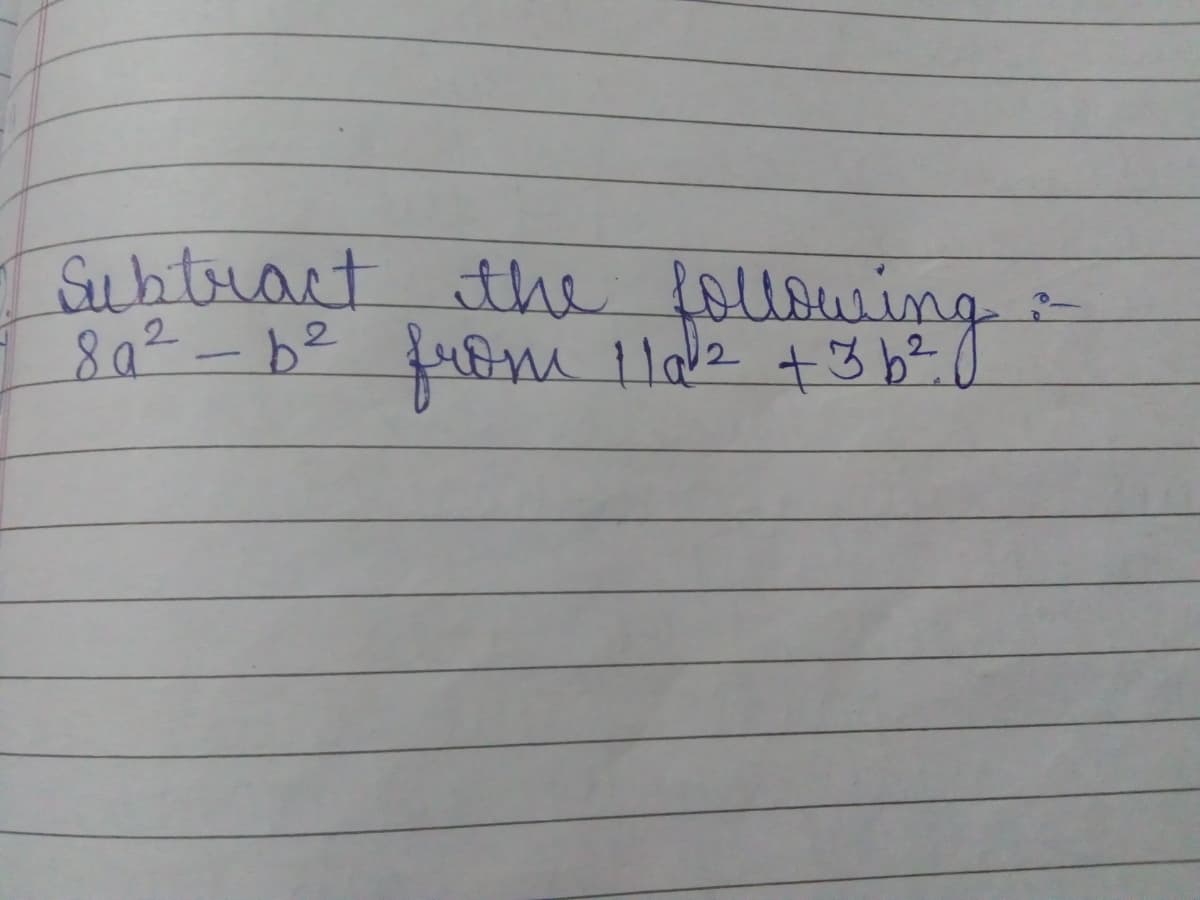 Subtract the following :-
8a² - b² from 11a² + 3b².